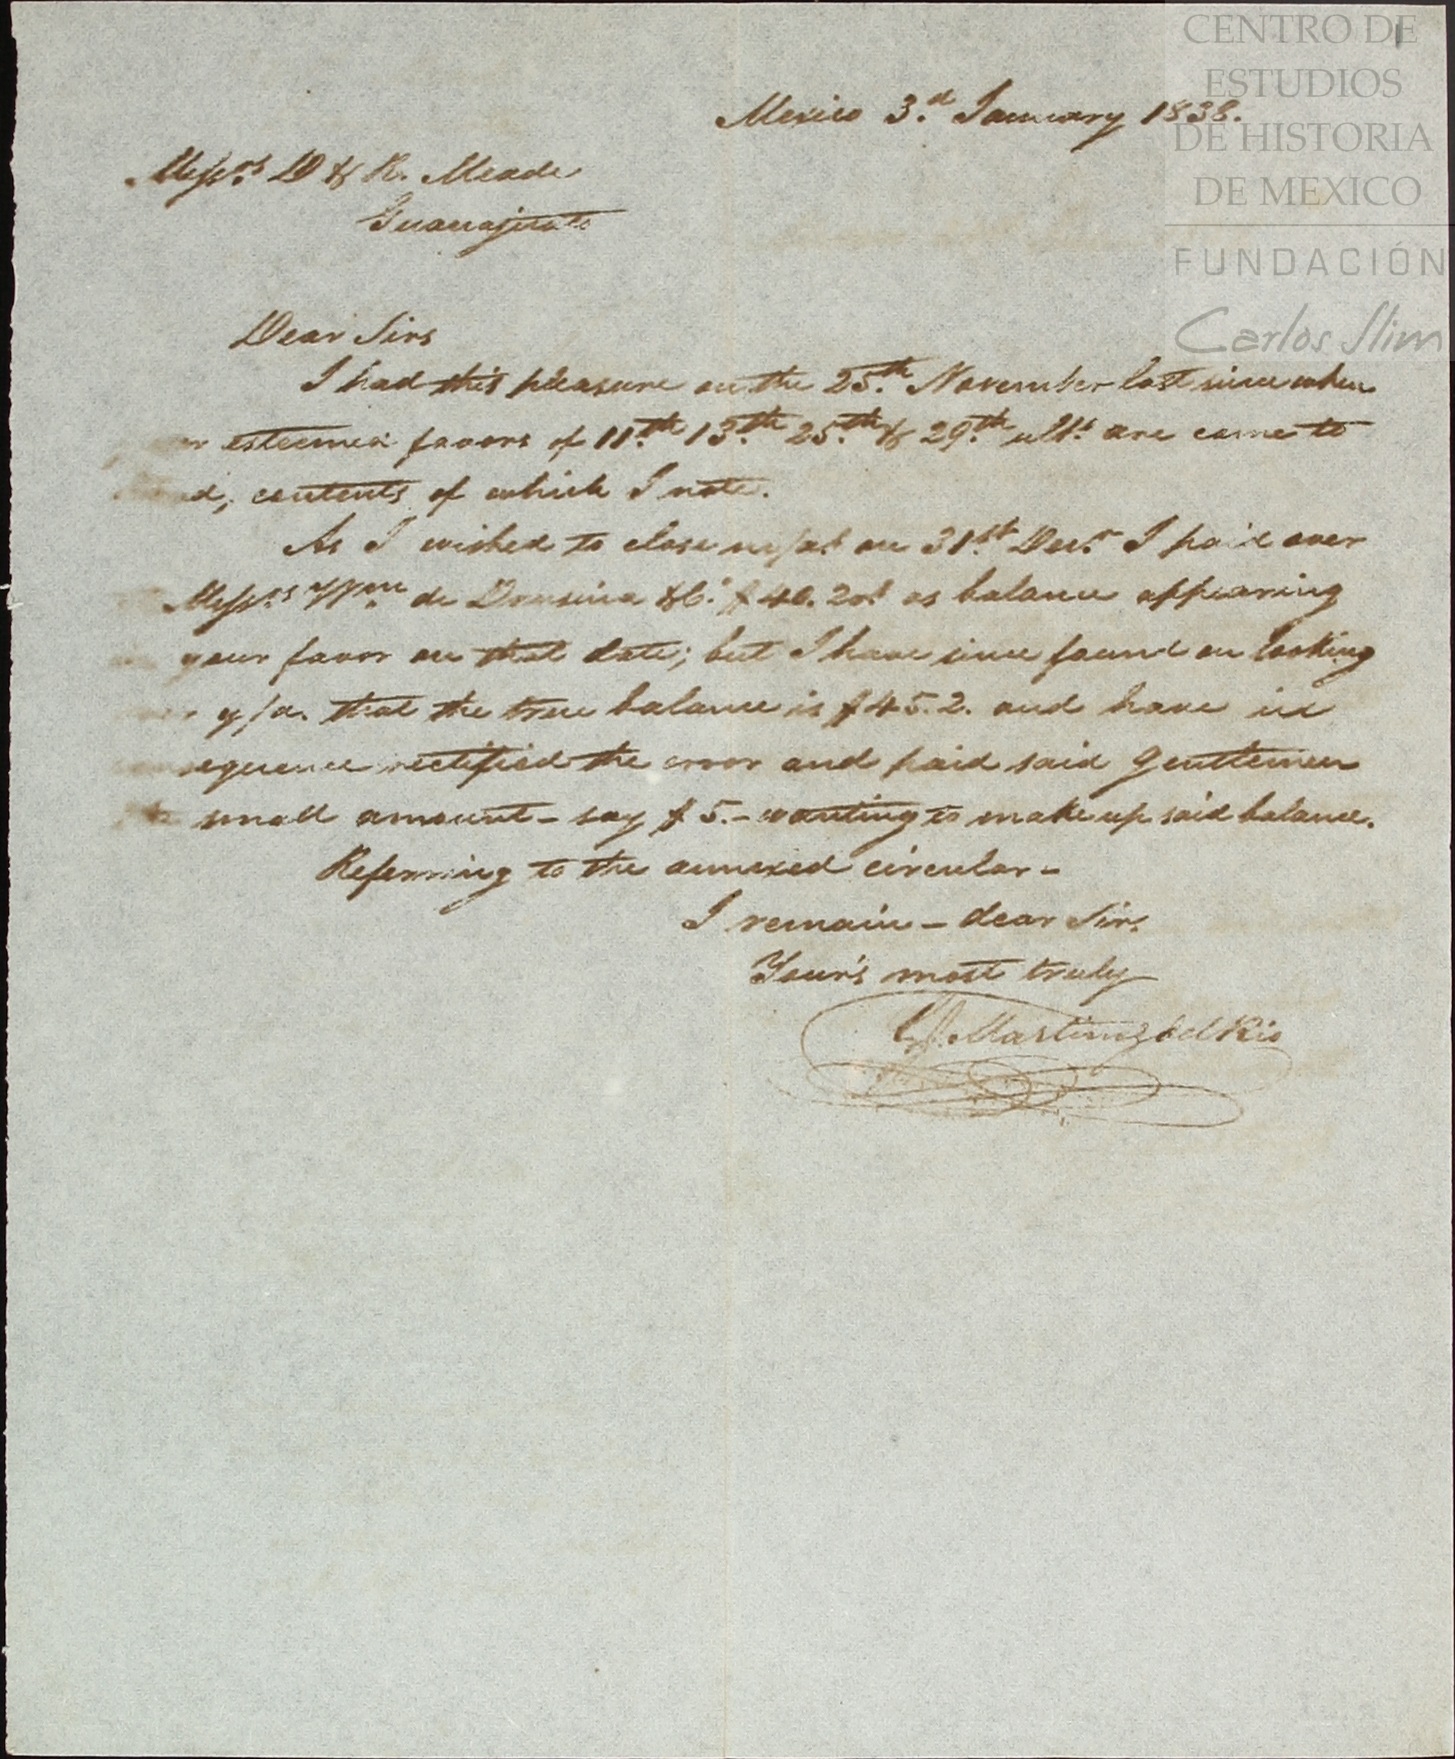 CENTRO DE
ESTUDIOS
DE HISTORIA
DE MEXICO
FUNDACIÓN
Carlos Slim
Mexico 3.d January 1838.
Messrs D & R. Meade
Guanajuato
Dear Sirs
I had this pleasure on the 25.th November last since when
esteemed favors of 11.th 13.th 25.th & 29.th ulto. are come to
contents of which I note.
As I wished to close m/act on 31.st Decr. I paid over
Messrs. Wm. de Drusina & Co. $40.2 as balance appearing
your favor on that date; but I have since found on looking
y/a. that the true balance is $45.2. and have in
rectified the error and paid said Gentlemen
small amount - say $5.- wanting to make up said balance.
Referring to the annexed circular -
I remain - dear Sirs
Your's most truly
Martinez del Rio